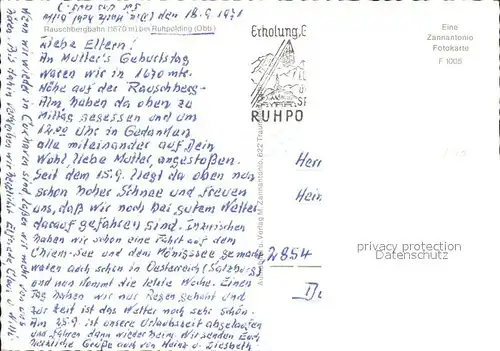 den 18.9.1971
Rauschbergbahn (1670 m) bei Ruhpolding (Obb.)
Liebe Eltern!
An Mutter's Geburtstag
waren wir in 1670 mtr.
Höhe auf der Rauschberg-
Alm, haben da oben zu
Mittag gegessen und um
Uhr in Gedanken
alle miteinander auf Dein
Wohl, liebe Mutter, angestoßen.
Seit dem 15.9. liegt da oben nun
schon hoher Schnee und freuen
uns, daß wir noch bei gutem Wetter
darauf gefahren sind. Inzwischen
haben wir schon eine Fahrt auf dem
Chiem-See und dem Königssee gemacht
waren auch schon in Oesterreich (Salzburg)
und nun kommt die letzte Woche. Einen
Tag haben wir nur Regen gehabt und
zur Zeit ist das Wetter noch sehr schön.
Am 25.9. ist unsere Urlaubszeit abgelaufen
und fahren dann wieder heim. Wir senden Euch
herzliche Grüße auch von Heinz u. Liesbeth
wir wieder in Loxharen sind, laßen wir mehr von uns
hören. Bis dahin verbleiben wir herzlichst Elfriede, Claus u. Willi
Erholung,
RUHPO
Eine
Zannantonio
Fotokarte
F 1005
u. Verlag M. Zannantonio, 822 Traun
Herr
Hein
2854
privacy protection
Datenschutz